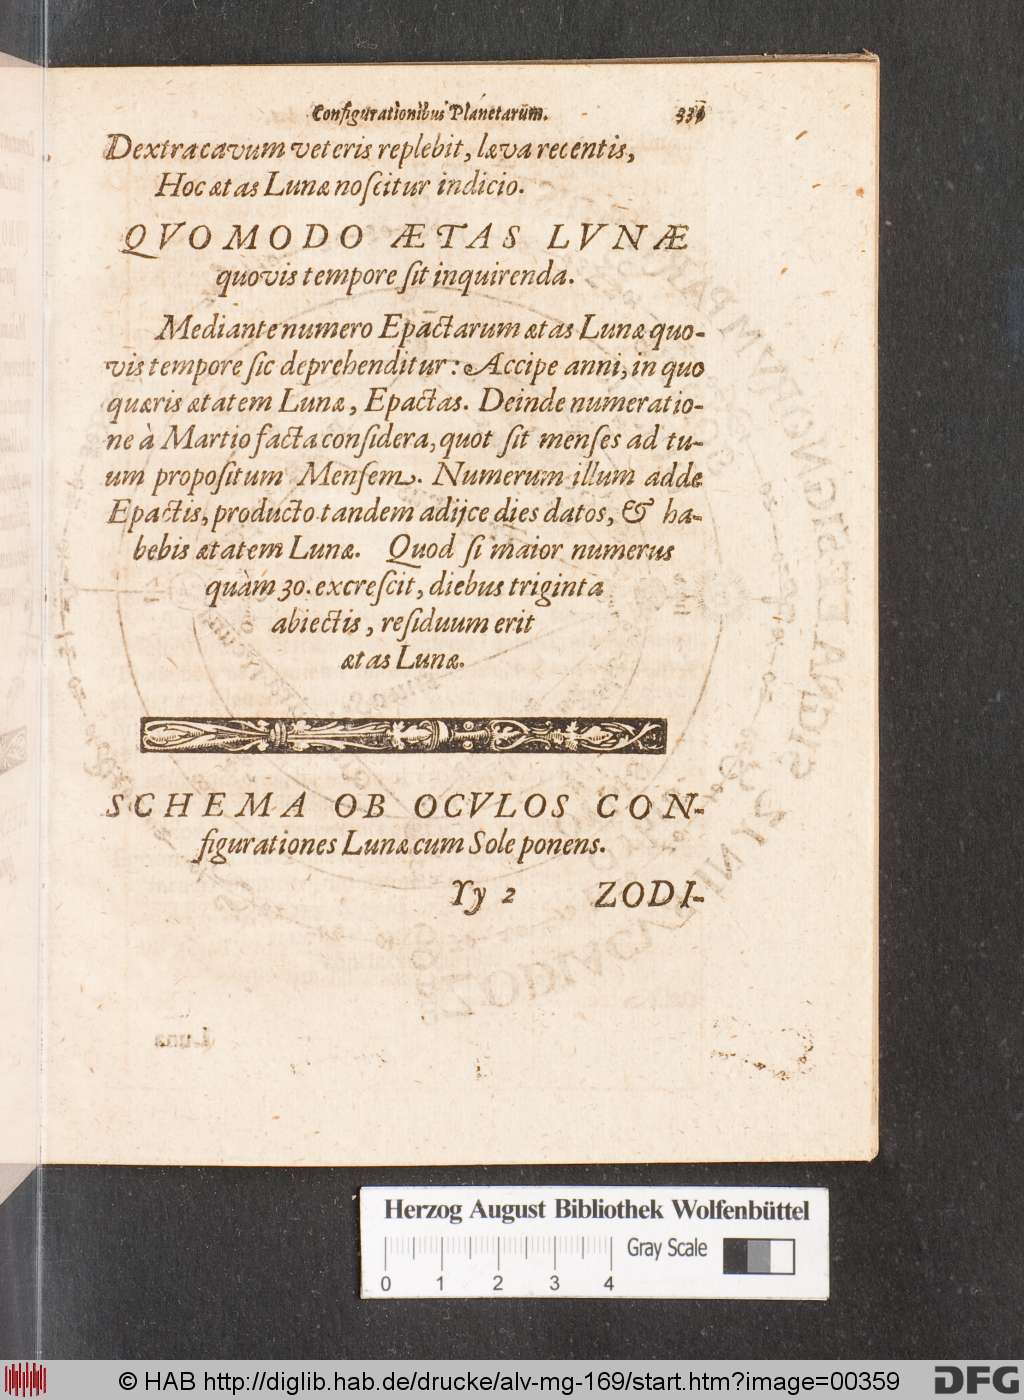 Configurationibus Planetarum. 331
Dextra cavum veteris replebit, læva recentis,
Hoc ætas Lunæ noſcitur indicio.
QVOMODO ÆTAS LVNÆ
quovis tempore ſit inquirenda.
Mediante numero Epactarum ætas Lunæ quo-
vis tempore ſic deprehenditur: Accipe anni, in quo
quæris ætatem Lunæ, Epactas. Deinde numeratio-
ne à Martio facta conſidera, quot ſit menſes ad tu-
um propoſitum Menſem. Numerum illum adde
Epactis, producto tandem adijce dies datos, & ha-
bebis ætatem Lunæ. Quod ſi maior numerus
quàm 30. excreſcit, diebus triginta
abiectis, reſiduum erit
ætas Lunæ.
SCHEMA OB OCVLOS CON-
figurationes Lunæ cum Sole ponens.
Yy 2 ZODI-
Herzog August Bibliothek Wolfenbüttel
Gray Scale
0 1 2 3 4
© HAB http://diglib.hab.de/drucke/alv-mg-169/start.htm?image=00359
DFG